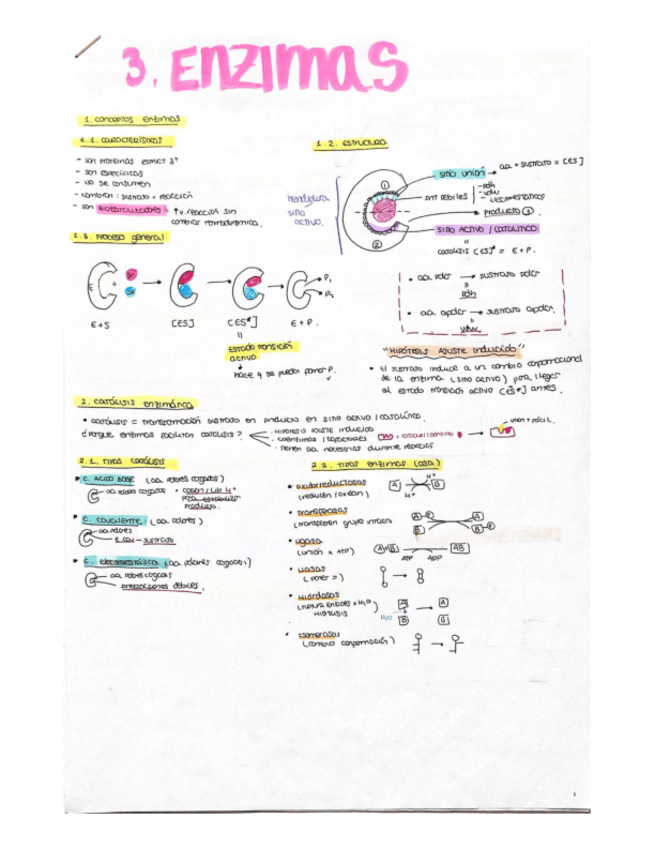 3. Enzimas
1. conceptos enzimas
1.1. características
- son proteínas estruct 3ª
- son específicas
- no se consumen
- nombran: sustrato + reacción
- son biocatalizadores ↑v. reacción sin
cambiar termodinámica.
1.2. estructura
hendidura
sitio
activo.
1
2
sitio unión → aa + sustrato = [ES]
int débiles
- pdh
- vdw
- electrostáticas
producto 2.
sitio activo / catalítico
catálisis [ES]* = E + P.
1.3. Proceso general
E + S1 S2
P1
P2
E + S
[ES]
[ES*]
E + P.
estado transición
activo
hace q se pueda formar P.
• aa polar → sustrato polar
pdh
• aa apolar → sustrato apolar.
vdw
"Hipótesis ajuste inducido"
• el sustrato induce a un cambio conformacional
de la enzima (sitio activo) para llegar
al estado transición activo [ES*] antes.
2. catálisis enzimática
• catálisis = transformación sustrato en producto en sitio activo / catalítico.
¿Porque enzimas facilitan catálisis?
- Hipótesis ajuste inducido
- coenzimas / cofactores
- tienen aa necesarios durante reacción
2.1. Tipos catálisis
• C. ácido base (aa polares cargados)
aa polares cargados
• C. covalente (aa polares)
aa polares
E cov - sustrato
• C. electrostática (aa polares cargados)
aa polares cargados
interacciones débiles.
2.2. Tipos enzimas (asa)
• oxidorreductasas
(reducen / oxidan)
A
H+
B
H+
• transferasas
(transfieren grupo
A
B
A
B
• ligasa
(unión x ATP)
A + B
AB
ATP ADP
• liasas
(poner =)
• Hidrolasas
(rotura enlaces x H2O)
Hidrólisis
H2O
A
B
A
B
• isomerasas
(cambio conformación)